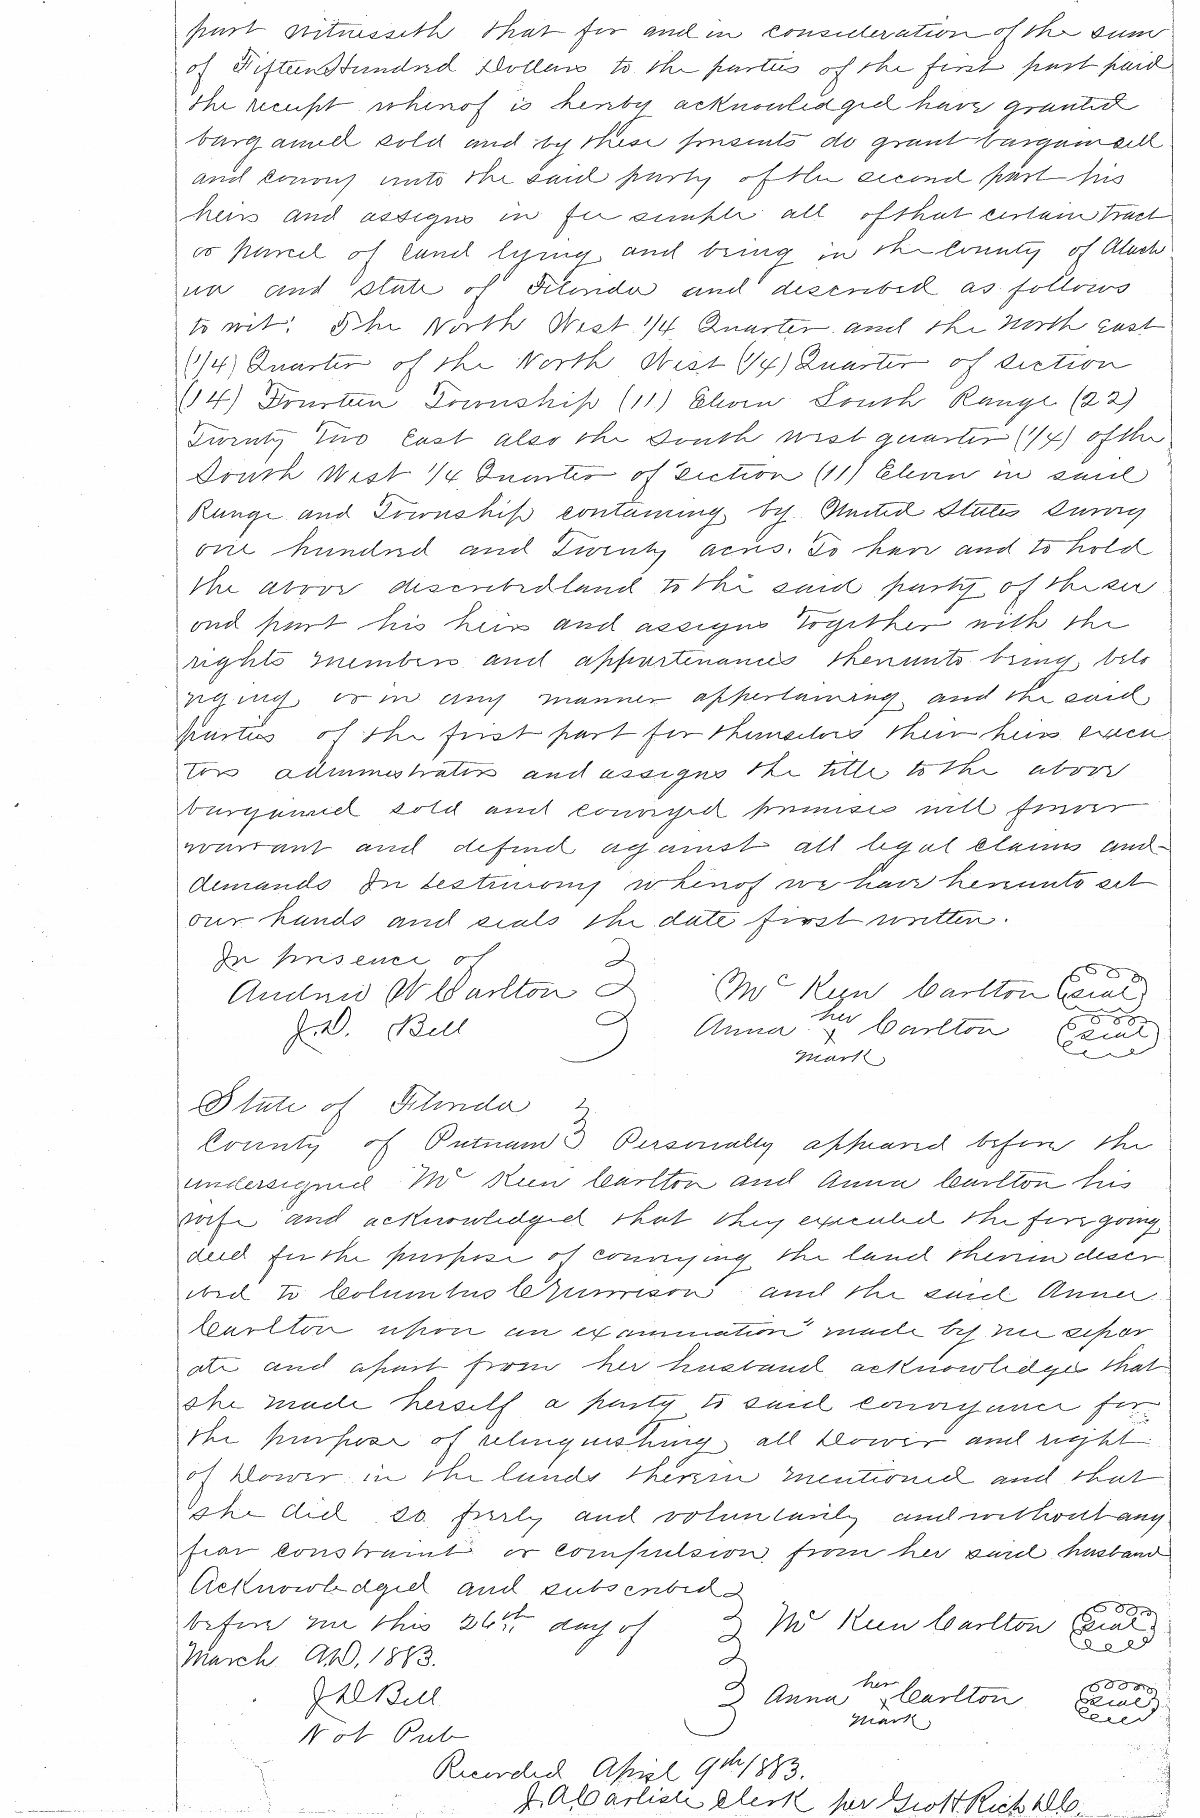 part witnesseth that for and in consideration of the sum
of Fifteen Hundred Dollars to the parties of the first part paid
the receipt whereof is hereby acknowledged have granted
bargained sold and by these presents do grant bargain sell
and convey unto the said party of the second part his
heirs and assigns in fee simple all of that certain tract
or parcel of land lying and being in the County of Alach
ua and state of Florida and described as follows
to wit: The North West 1/4 Quarter and the North East
(1/4) Quarter of the North West (1/4) Quarter of section
(14) Fourteen Township (11) Eleven South Range (22)
Twenty Two East also the South west quarter (1/4) of the
South West 1/4 Quarter of Section (11) Eleven in said
Range and Township containing by United States Survey
one hundred and Twenty acres. To have and to hold
the above described land to the said party of the sec
ond part his heirs and assigns together with the
rights members and appurtenances thereunto being belo
nging or in any manner appertaining and the said
parties of the first part for themselves their heirs execu
tors administrators and assigns the title to the above
bargained sold and conveyed premises will forever
warrant and defend against all legal claims and
demands In testimony whereof we have hereunto set
our hands and seals the date first written.
In presence of
Andrew W Carlton Mc Keen Carlton (seal)
J.D. Bell Anna her x mark Carlton (seal)
State of Florida
County of Putnam Personally appeared before the
undersigned Mc Keen Carlton and Anna Carlton his
wife and acknowledged that they executed the foregoing
deed for the purpose of conveying the land therein descr
ibed to Columbus C and the said Anna
Carlton upon an examination made by me separ
ate and apart from her husband acknowledge that
she made herself a party to said conveyance for
the purpose of relinquishing all Dower and right
of Dower in the lands therein mentioned and that
she did so freely and voluntarily and without any
fear constraint or compulsion from her said husband
Acknowledged and subscribed
before me this 26th day of Mc Keen Carlton (seal)
March A.D. 1883.
J D Bell Anna her x mark Carlton (seal)
Not Pub
Recorded April 9th 1883.
J. A. Carlisle Clerk per D.C.